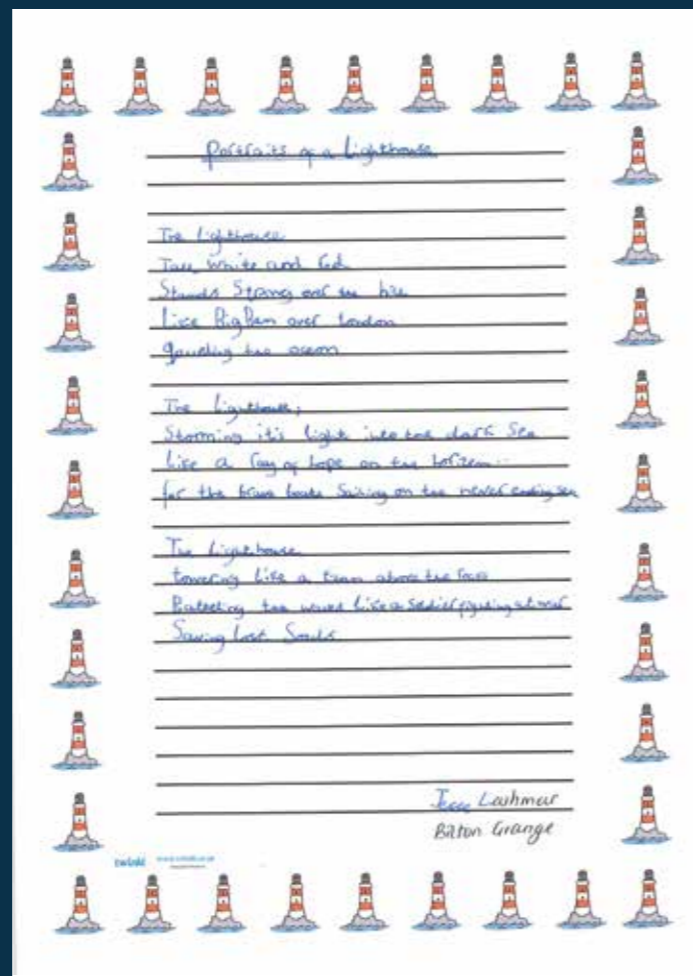 Portraits of a Lighthouse
The lighthouse
Tall, white and red
Stands Strong over the hill
Like Big Ben over London
the ocean
The Lighthouse,
Storming it's light into the dark sea
Like a ray of hope on the horizon
for the brave boats Sailing on the never ending sea
The Lighthouse
towering like a above the rocks
the waves like a soldier fighting at war
Saving Lost Souls
Lashmar
Bilton Grange
twinkl